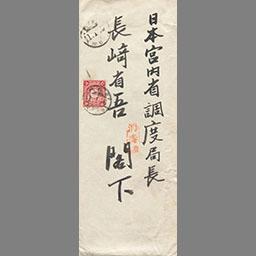 日本宮内省調度局長
長崎省吾 閣下